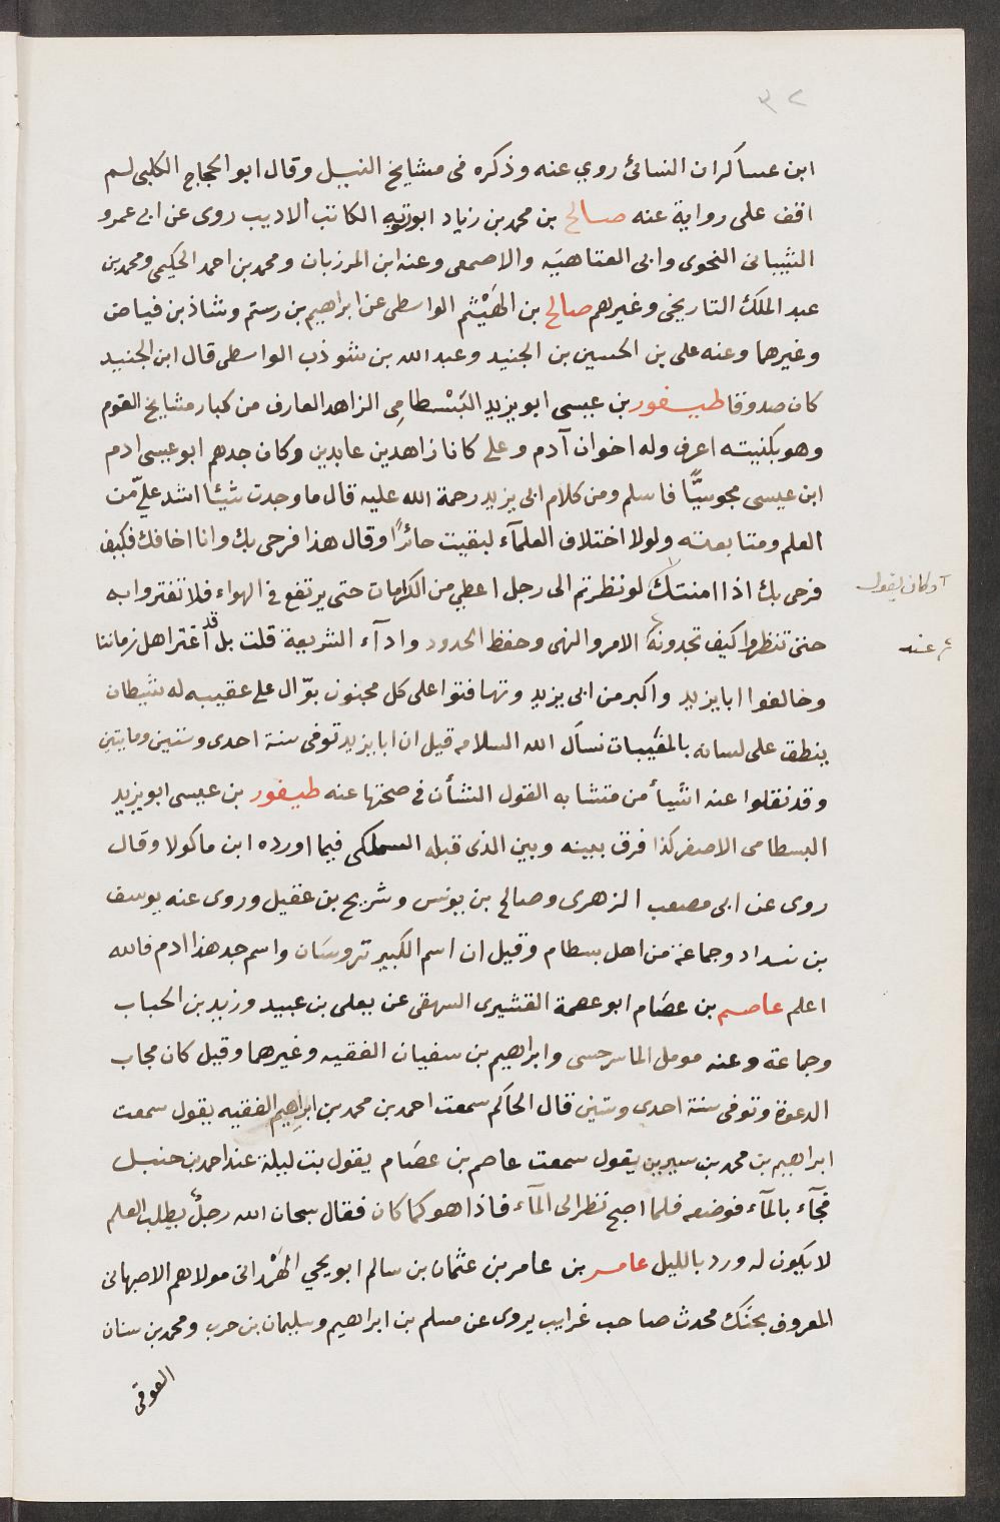 ٣٢
ابن عساكر ان النسائى روي عنه وذكره فى مشايخ النبيل وقال ابو الحجاج الكلبى لم
اقف على رواية عنه صالح بن محمد بن زياد ابو توبه الكاتب الاديب روى عن ابى عمرو
الشيبانى النحوى وابى العتاهيَه والاصمعى وعنه ابن المرزبان ومحمد بن احمد الحكيمى ومحمد بن
عبد الملك التاريخى وغيرهم صالح بن الهَيْثم الواسطى عن ابراهيم بن رستم وشاذ بن فياض
وغيرهما وعنه على بن الحسين بن الجنيد وعبد الله بن شوذب الواسطى قال ابن الجنيد
كان صدوقا طيفور بن عيسى ابو يزيد البَسْطامِى الزاهد العارف من كبار مشايخ القوم
وهو بكنيته اعرف وله اخوان آدم وعلى كانا زاهدين عابدين وكان جدهم ابو عيسى ادم
ابن عيسى مجوسيًّا فاسلم ومن كلام ابى يزيد رحمة الله عليه قال ما وجدت شيئا اشد علىّ من
العلم ومتابعته ولولا اختلاف العلمآء لبقيت حائرًا وقال هذا فرحى بك وانا اخافك فكيف
فرحى بك اذا امنتك لو نظرتم الى رجل اعطي من الكرامات حتى يرتفع فى الهواء فلا تغتروا به
وكان يقول
حتى تنظروا كيف تجدونه الامر والنهى وحفظ الحدود وادآء الشريعة قلت بل قد اغتر اهل زماننا
عند
وخالفوا ابا يزيد واكبر من ابى يزيد وتهافتوا على كل مجنون بوّال على عقبيه له شيطان
ينطق على لسانه بالمغيبات نسأل الله السلامه قيل ان ابا يزيد توفى سنة احدى وستين ومايتين
وقد نقلوا عنه اشيأ من متشابه القول الشأن فى صحتها عنه طيفور بن عيسى ابو يزيد
البسطامى الاصغر كذا فرق بينه وبين الذى قبله السملكى فيما اورده ابن ماكولا وقال
روى عن ابى مصعب الزهرى وصالح بن يونس وشريح بن عقيل وروى عنه يوسف
بن شداد وجماعة من اهل بسطام وقيل ان اسم الكبير تروسَان واسم جد هذا ادم فالله
اعلم عاصم بن عصَام ابو عصمة القشيرى البيهقى عن يعلى بن عبيد وزيد بن الحباب
وجماعة وعنه مومل الماسرجسى وابراهيم بن سفيان الفقيه وغيرهما وقيل كان مجاب
الدعوة وتوفى سنة احدى وستين قال الحاكم سمعت احمد بن محمد بن ابراهيم الفقيه يقول سمعت
ابراهيم بن محمد بن سيرين يقول سمعت عاصم بن عصَام يقول بت ليلة عند احمد بن حنبل
فجآء بالمآء فوضعه فلما اصبح نظر الى المآء فاذا هو كما كان فقال سبحان الله رجلٌ يطلب العلم
لا يكون له ورد بالليل عامر بن عامر بن عثمان بن سالم ابو يحيى الهَمْدانى مولاهم الاصبهانى
المعروف بحنَّك محدث صاحب غرايب يروى عن مسلم بن ابراهيم وسليمان بن حرب ومحمد بن سنان
العوقى